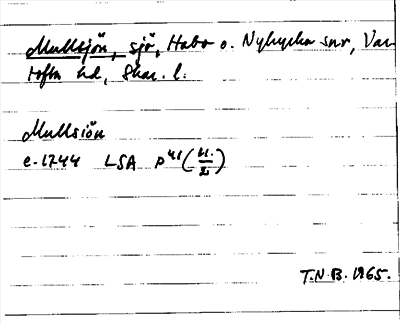 Mullsjön, sjö, Habo o. Nykyrka snr, Var-
tofta hd, Skar. l.
Mullsiön
e. 1744 LSA P 41 (11/2)
T.N.B. 1965.